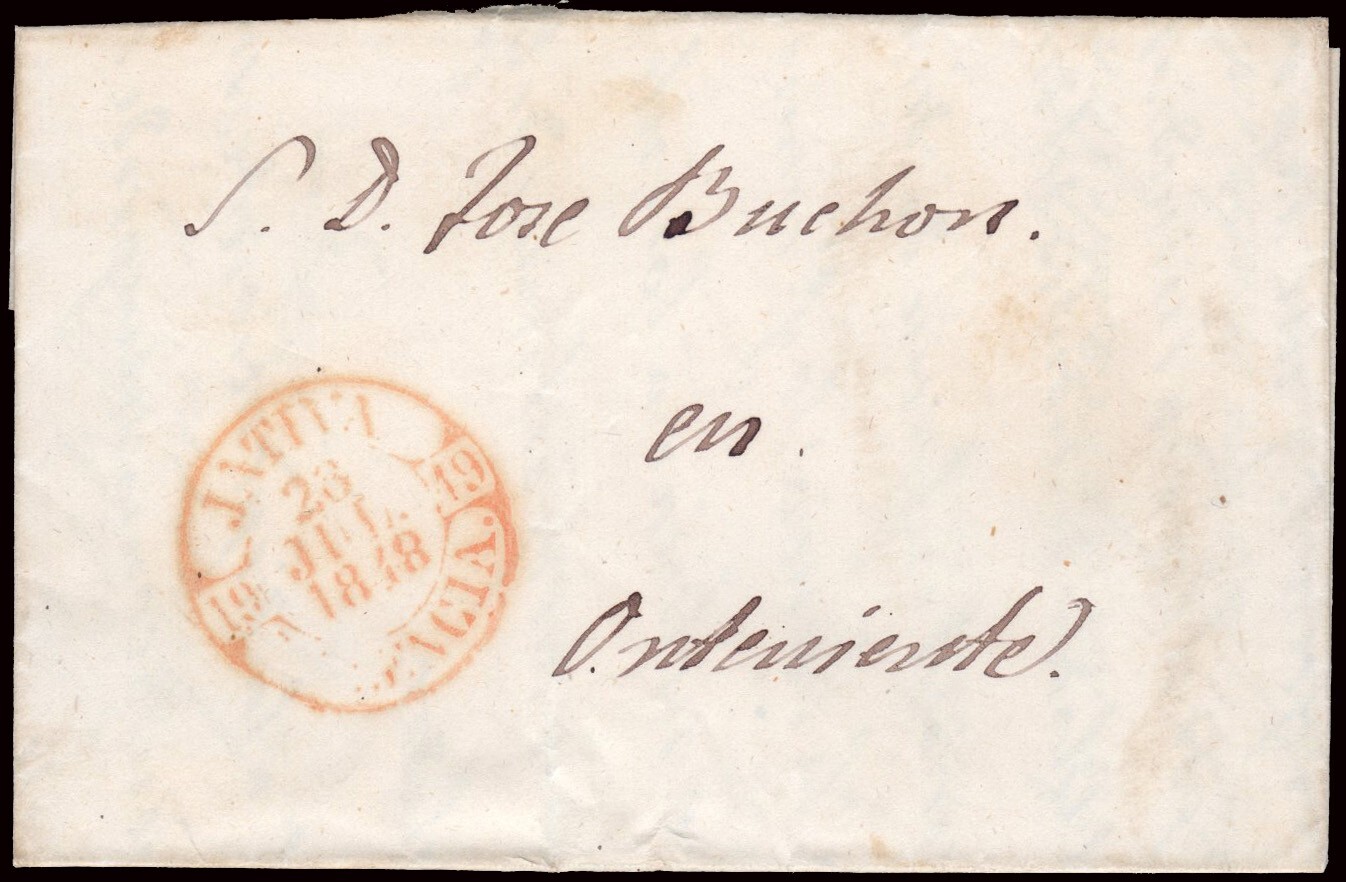 S. D. Jose Buchon.
en.
Onteniente.
JATIVA
19
23
JUL.
1848
19